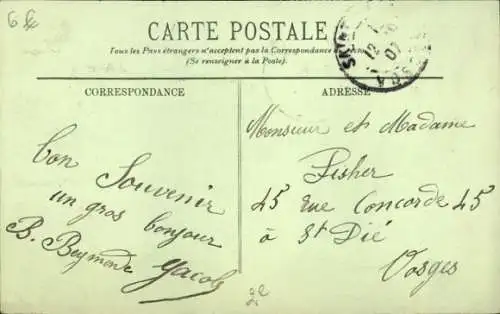 6 €
CARTE POSTALE
Tous les Pays étrangers n'acceptent pas la Correspondance
(Se renseigner à la Poste)
CORRESPONDANCE
ADRESSE
bon Souvenir
un gros bonjour
B. Jacob
Monsieur et Madame
Fisher
45 Rue Concorde 45
à St Dié
Vosges
12
07